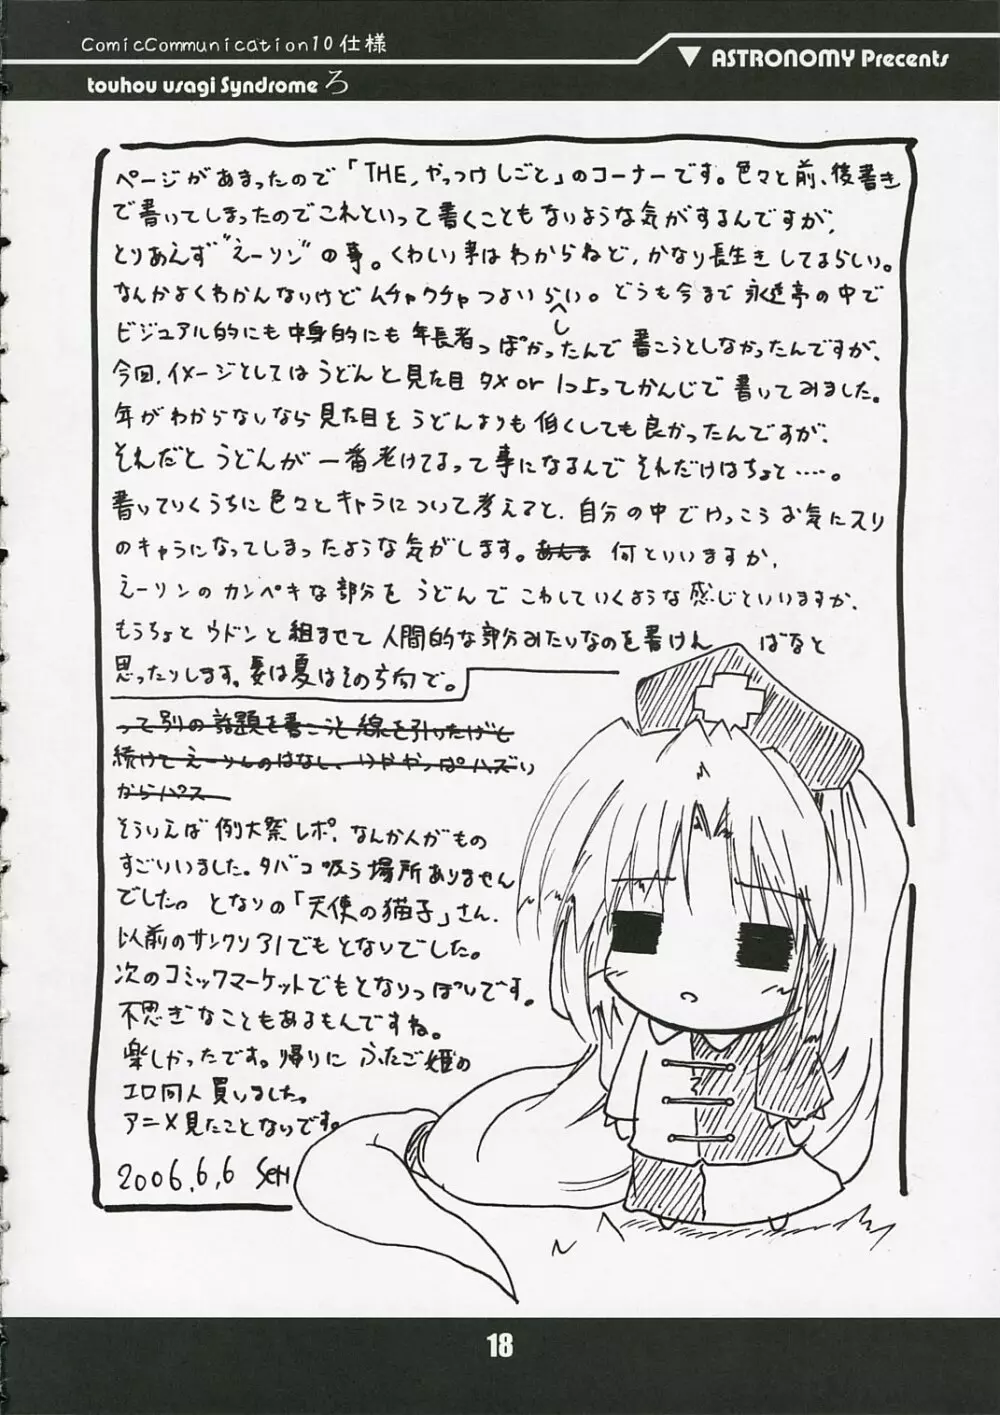 ComicCommunication10仕様
touhou usagi Syndrome ろ
▼ ASTRONOMY Precents
ページがあまったので「THE,やっつけしごと」のコーナーです。色々と前、後書き
で書いてしまったのでこれといって書くこともないような気がするんですが、
とりあえず“えーリン”の事。くわしい事はわからねど、かなり長生きしてるらしい。
なんかよくわかんないけどムチャクチャつよいらしい。どうも今まで永遠亭の中で
ビジュアル的にも中身的にも年長者っぽかったんで書こうとしなかったんですが、
今回、イメージとしてはうどんと見た目タメor1つ上ってかんじで書いてみました。
年がわからないなら見た目をうどんよりも低くしても良かったんですが、
それだとうどんが一番老けてるって事になるんでそれだけはちょと……。
書いていくうちに色々とキャラについて考えてると、自分の中でけっこうお気にスリ
のキャラになってしまったような気がします。あんま 何といいますか、
えーリンのカンペキな部分をうどんでこわしていくような感じといいますか、
もうちょとウドンと組ませて人間的な部分みたいなのを書けん ばなと
思ったりします。夏はその方向で。
って別の話題を書こうと線を引いたけど
続けてえーりんのはなし、いややっぱハズい
からパス
そういえば例大祭レポ、なんか人がもの
すごいいました。タバコ吸う場所ありません
でした。となりの「天使の猫子」さん、
以前のサンクリ31でもとなりでした。
次のコミックマーケットでもとなりっぽいです。
不思ぎなこともあるもんですね。
楽しかったです。帰りにふたご姫の
エロ同人買いました。
アニメ見たことないです。
2006.6.6
18